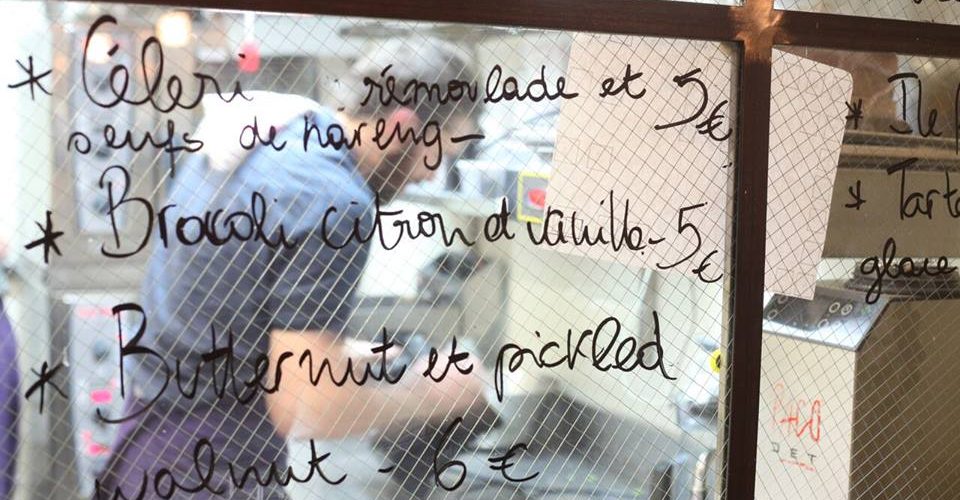 * Céleri rémoulade et 5€
oeufs de hareng -
* Brocoli citron et vanille - 5€
* Butternut et pickled
walnut - 6€
* Ile
* Tart
glace